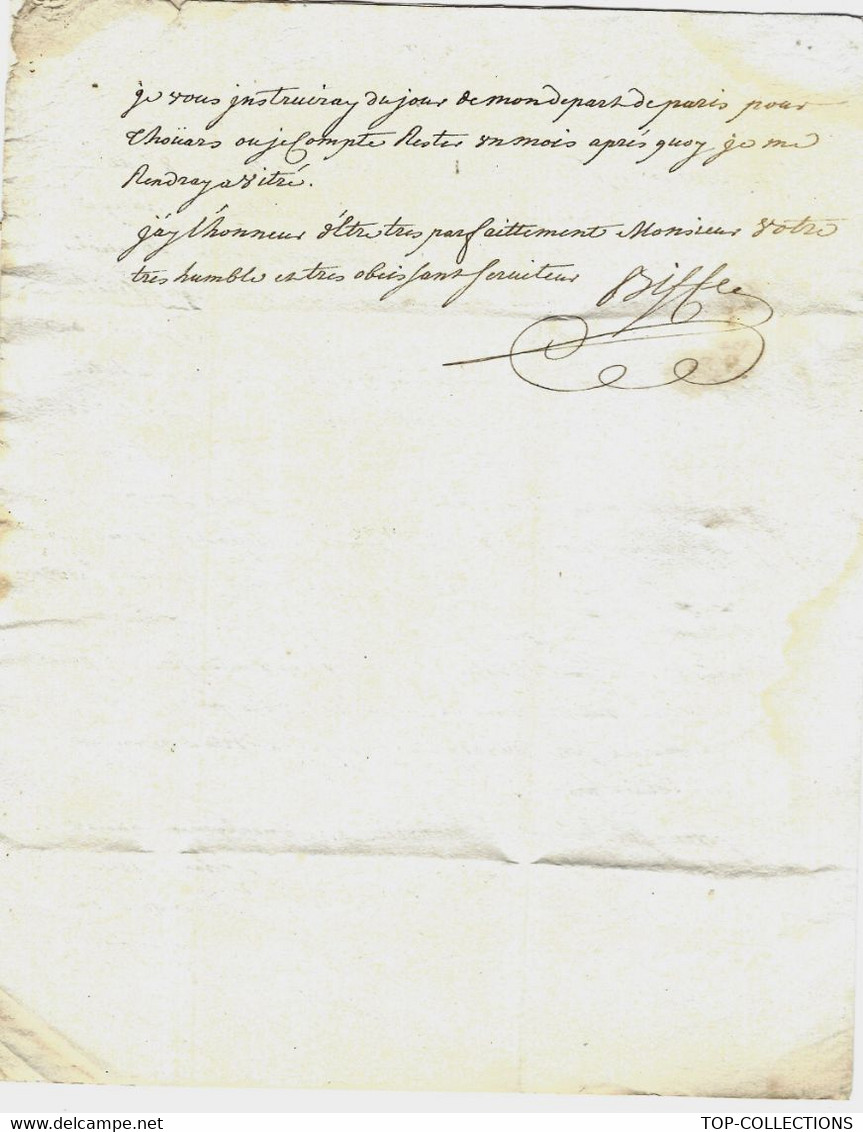 je vous jnstruiray du jour de mon depart de paris pour
thoüars ou je Compte Rester un mois aprés quoy je me
Rendray a vitré.
j'ay l'honneur d'Estre tres parfaittement Monsieur votre
tres humble et tres obeissant serviteur
TOP-COLLECTIONS